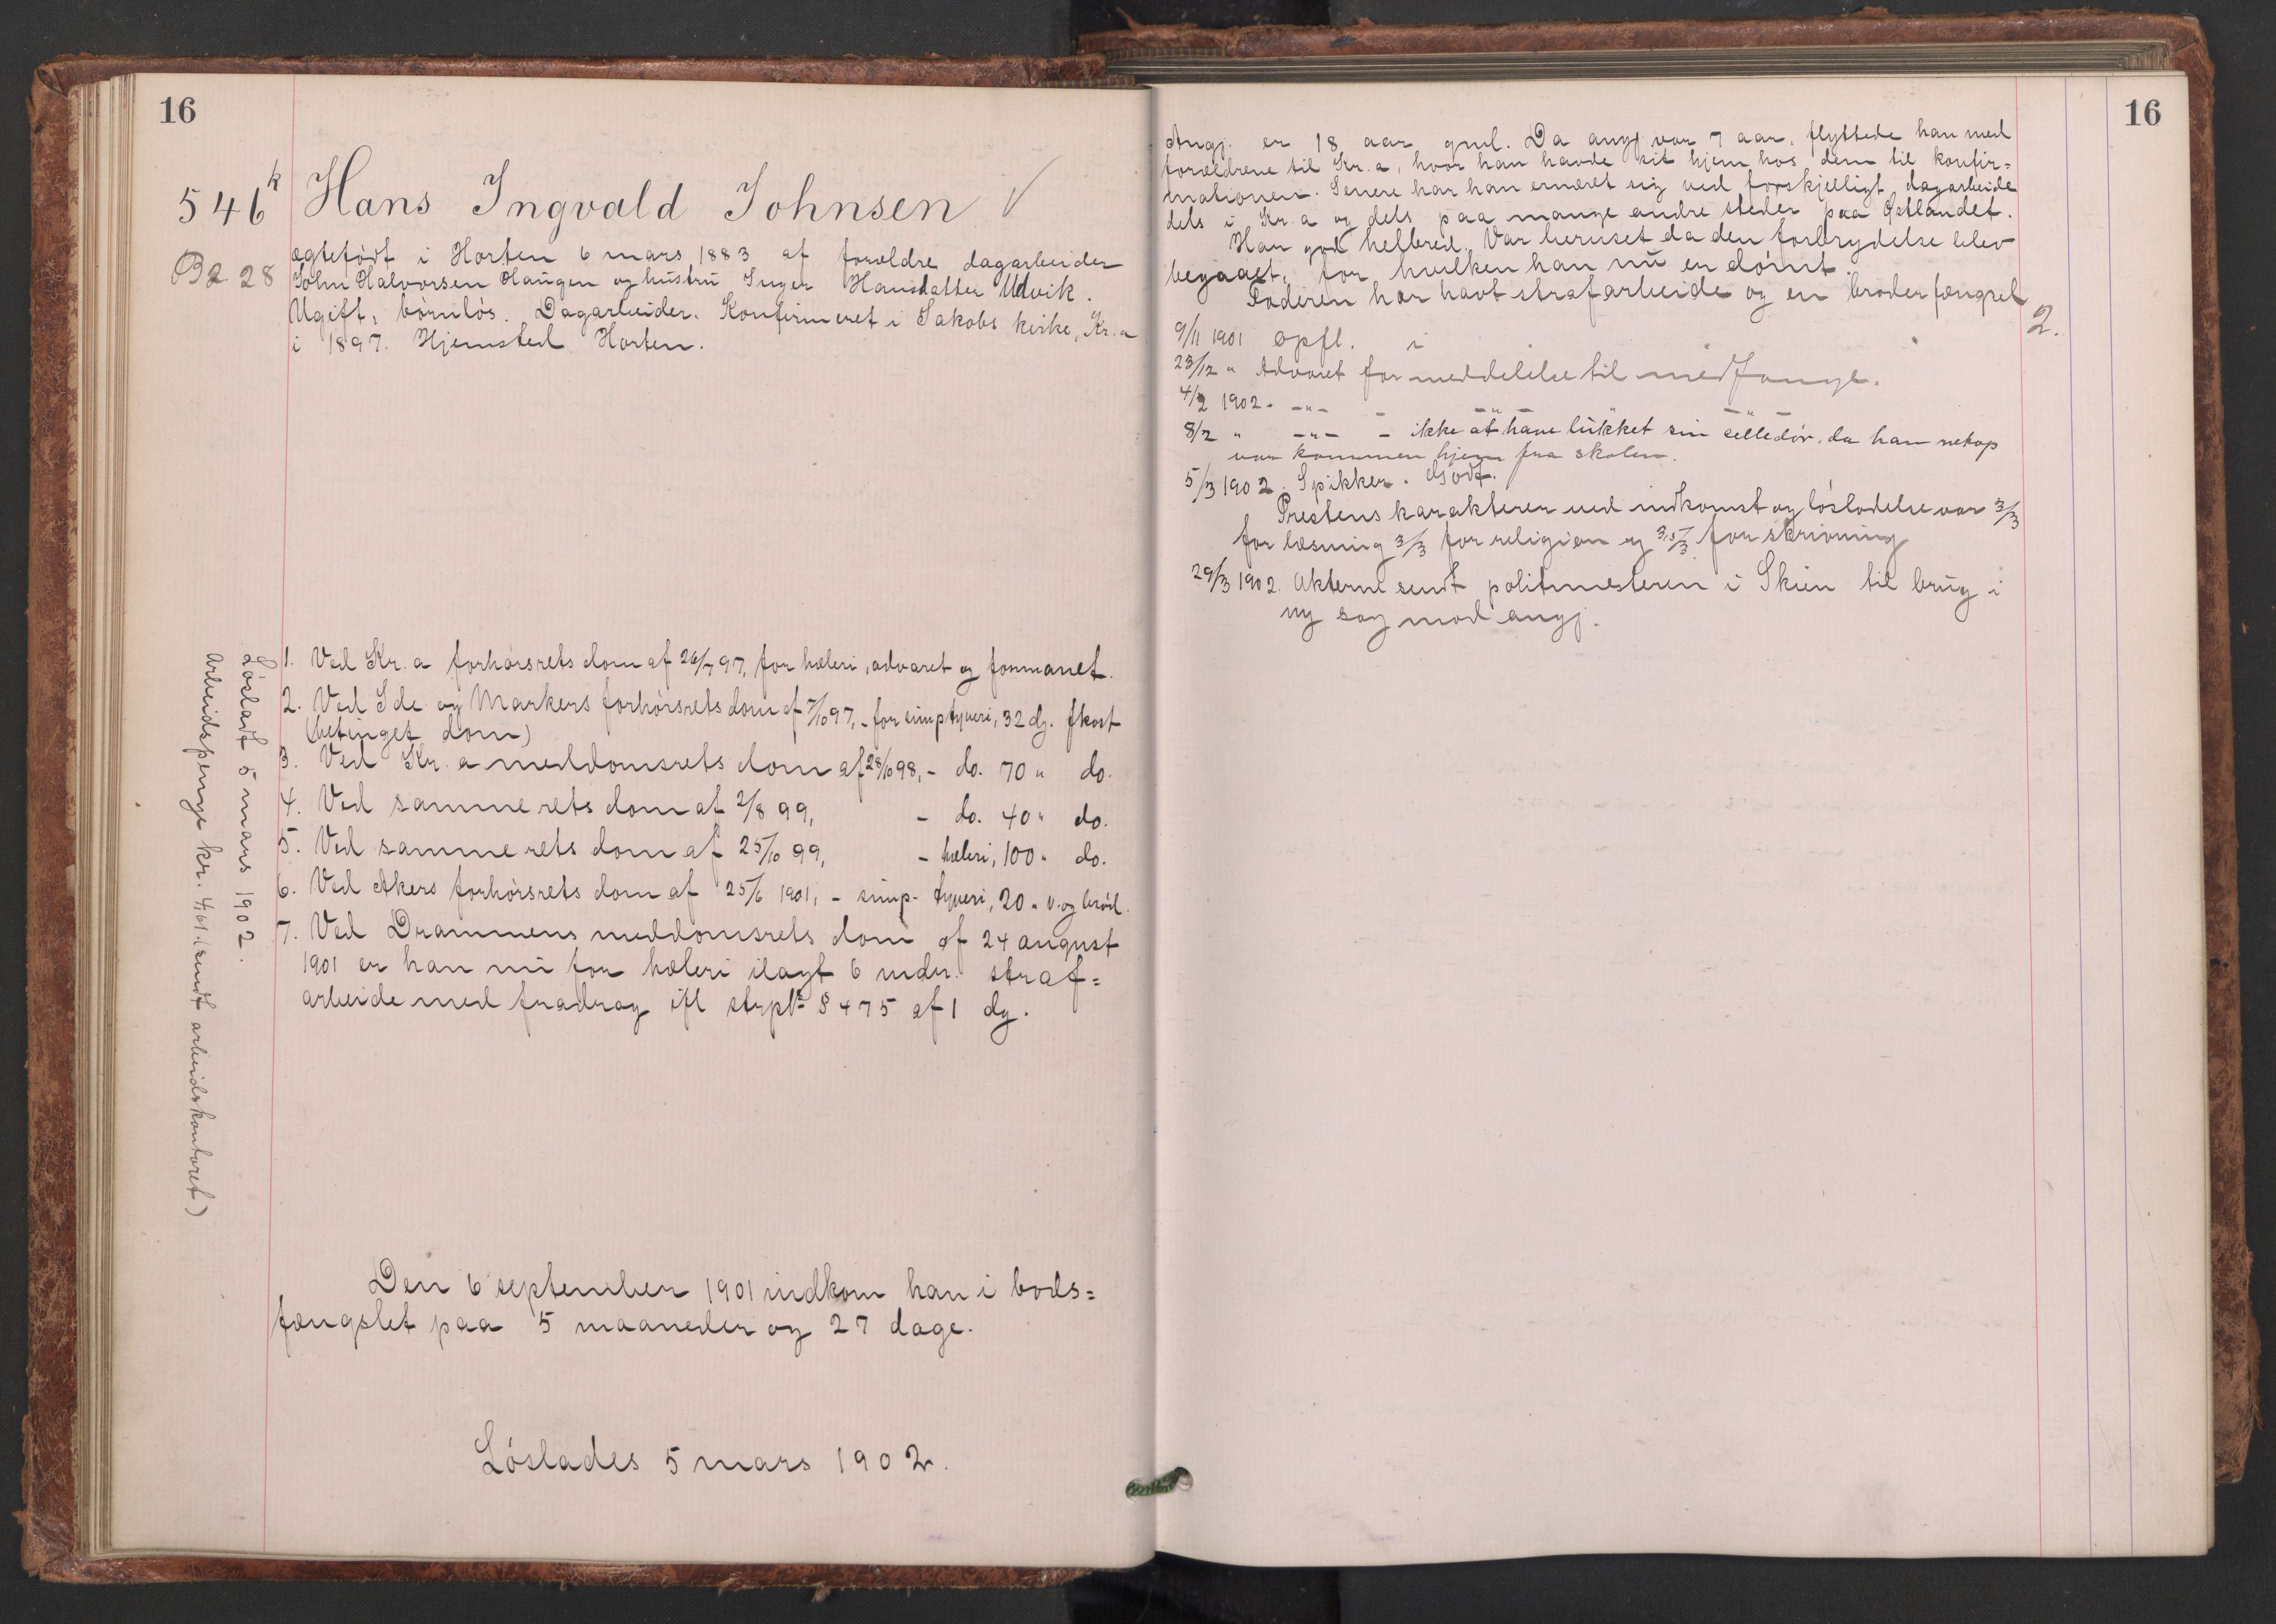 16
546 k
Hans Ingvald Johnsen ✓
B2 28
ægtefødt i Horten 6 mars 1883 af forældre dagarbeider
John Halvorsen Haugen og hustru Inger Hansdatter Udvik.
Ugift, børnløs. Dagarbeider. Konfirmeret i Jakobs kirke, Kr.a
i 1897. Hjemsted Horten.
1. Ved Kr.a forhørsrets dom af 26/7 97, for hæleri, advaret og formanet.
2. Ved Ide og Markers forhørsrets dom af 7/10 97, - for simp tyveri, 32 dg. fkost
(betinget dom)
3. Ved Kr.a meddomsrets dom af 28/10 98, - do. 70 " do.
4. Ved samme rets dom af 2/8 99, - do. 40 " do.
5. Ved samme rets dom af 25/10 99, - hæleri, 100 " do.
6. Ved Akers forhørsrets dom af 25/6 1901, - simp. tyveri, 20 " v. og brød.
7. Ved Drammens meddomsrets dom af 24 august
1901 er han nu for hæleri ilagt 6 mdr. straf=
arbeide med fradrag ifl strpl. § 475 af 1 dg.
Løsladt 5 mars 1902.
Arbeidspenge kr. 4,61 (sendt arbeidskontoret)
Den 6 september 1901 indkom han i bods=
fængslet paa 5 maaneder og 27 dage.
Løslades 5 mars 1902.
16
Angj. er 18 aar gml. Da angj var 7 aar, flyttede han med
forældrene til Kr.a, hvor han havde sit hjem hos dem til konfir=
mationen. Senere har han ernæret sig ved forskjelligt dagarbeide
dels i Kr.a og dels paa mange andre steder paa Østlandet.
Har god helbred. Var beruset da den forbrydelse blev
begaaet, for hvilken han nu er dømt.
Faderen har havt strafarbeide og en broder fængsel
2.
9/11 1901 opfl. i
23/12 " Advaret for meddelelse til medfange.
4/2 1902. -"- - -"- -"-
8/2 " -"- - ikke at have lukket sin celledør, da han netop
var kommen hjem fra skolen.
5/3 1902. Spikker. Godt.
Prestens karakterer ved indkomst og løsladelse var 3/3
for læsning 3/3 for religion og 3,5/3 for skrivning
29/3 1902. Akterne sendt politimesteren i Skien til brug i
ny sag mod angj.